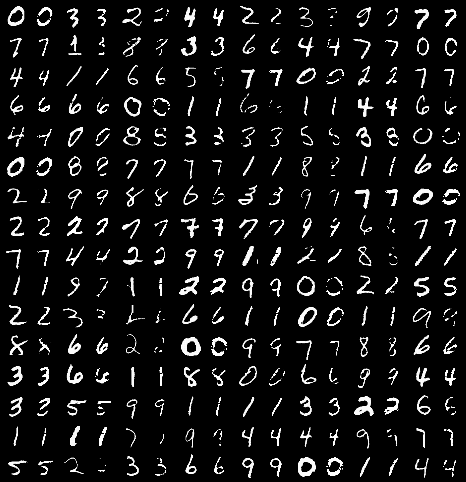 0 0 3 3 2 2 4 4 2 2 3 3 9 9 7 7
7 7 1 1 8 8 3 3 6 6 4 4 7 7 0 0
4 4 1 1 6 6 5 5 7 7 0 0 2 2 7 7
6 6 6 6 0 0 1 1 6 6 1 1 4 4 6 6
4 4 0 0 8 8 3 3 3 3 5 5 3 3 0 0
0 0 8 8 7 7 7 7 1 1 8 8 1 1 6 6
2 2 9 9 8 8 6 6 3 3 9 9 7 7 0 0
2 2 2 2 7 7 7 7 7 7 9 9 6 6 7 7
7 7 4 4 2 2 9 9 1 1 2 2 8 8 1 1
1 1 9 9 1 1 2 2 9 9 0 0 2 2 5 5
2 2 3 3 6 6 1 1 0 0 1 1 9 9
8 8 6 6 2 2 0 0 9 9 7 7 8 8 6 6
3 3 6 6 1 1 8 8 0 0 6 6 9 9 4 4
3 3 5 5 9 9 1 1 1 1 3 3 2 2 6 6
1 1 1 1 9 9 4 4 4 4 9 9 7 7
5 5 2 3 3 6 6 9 9 0 0 1 1 4 4